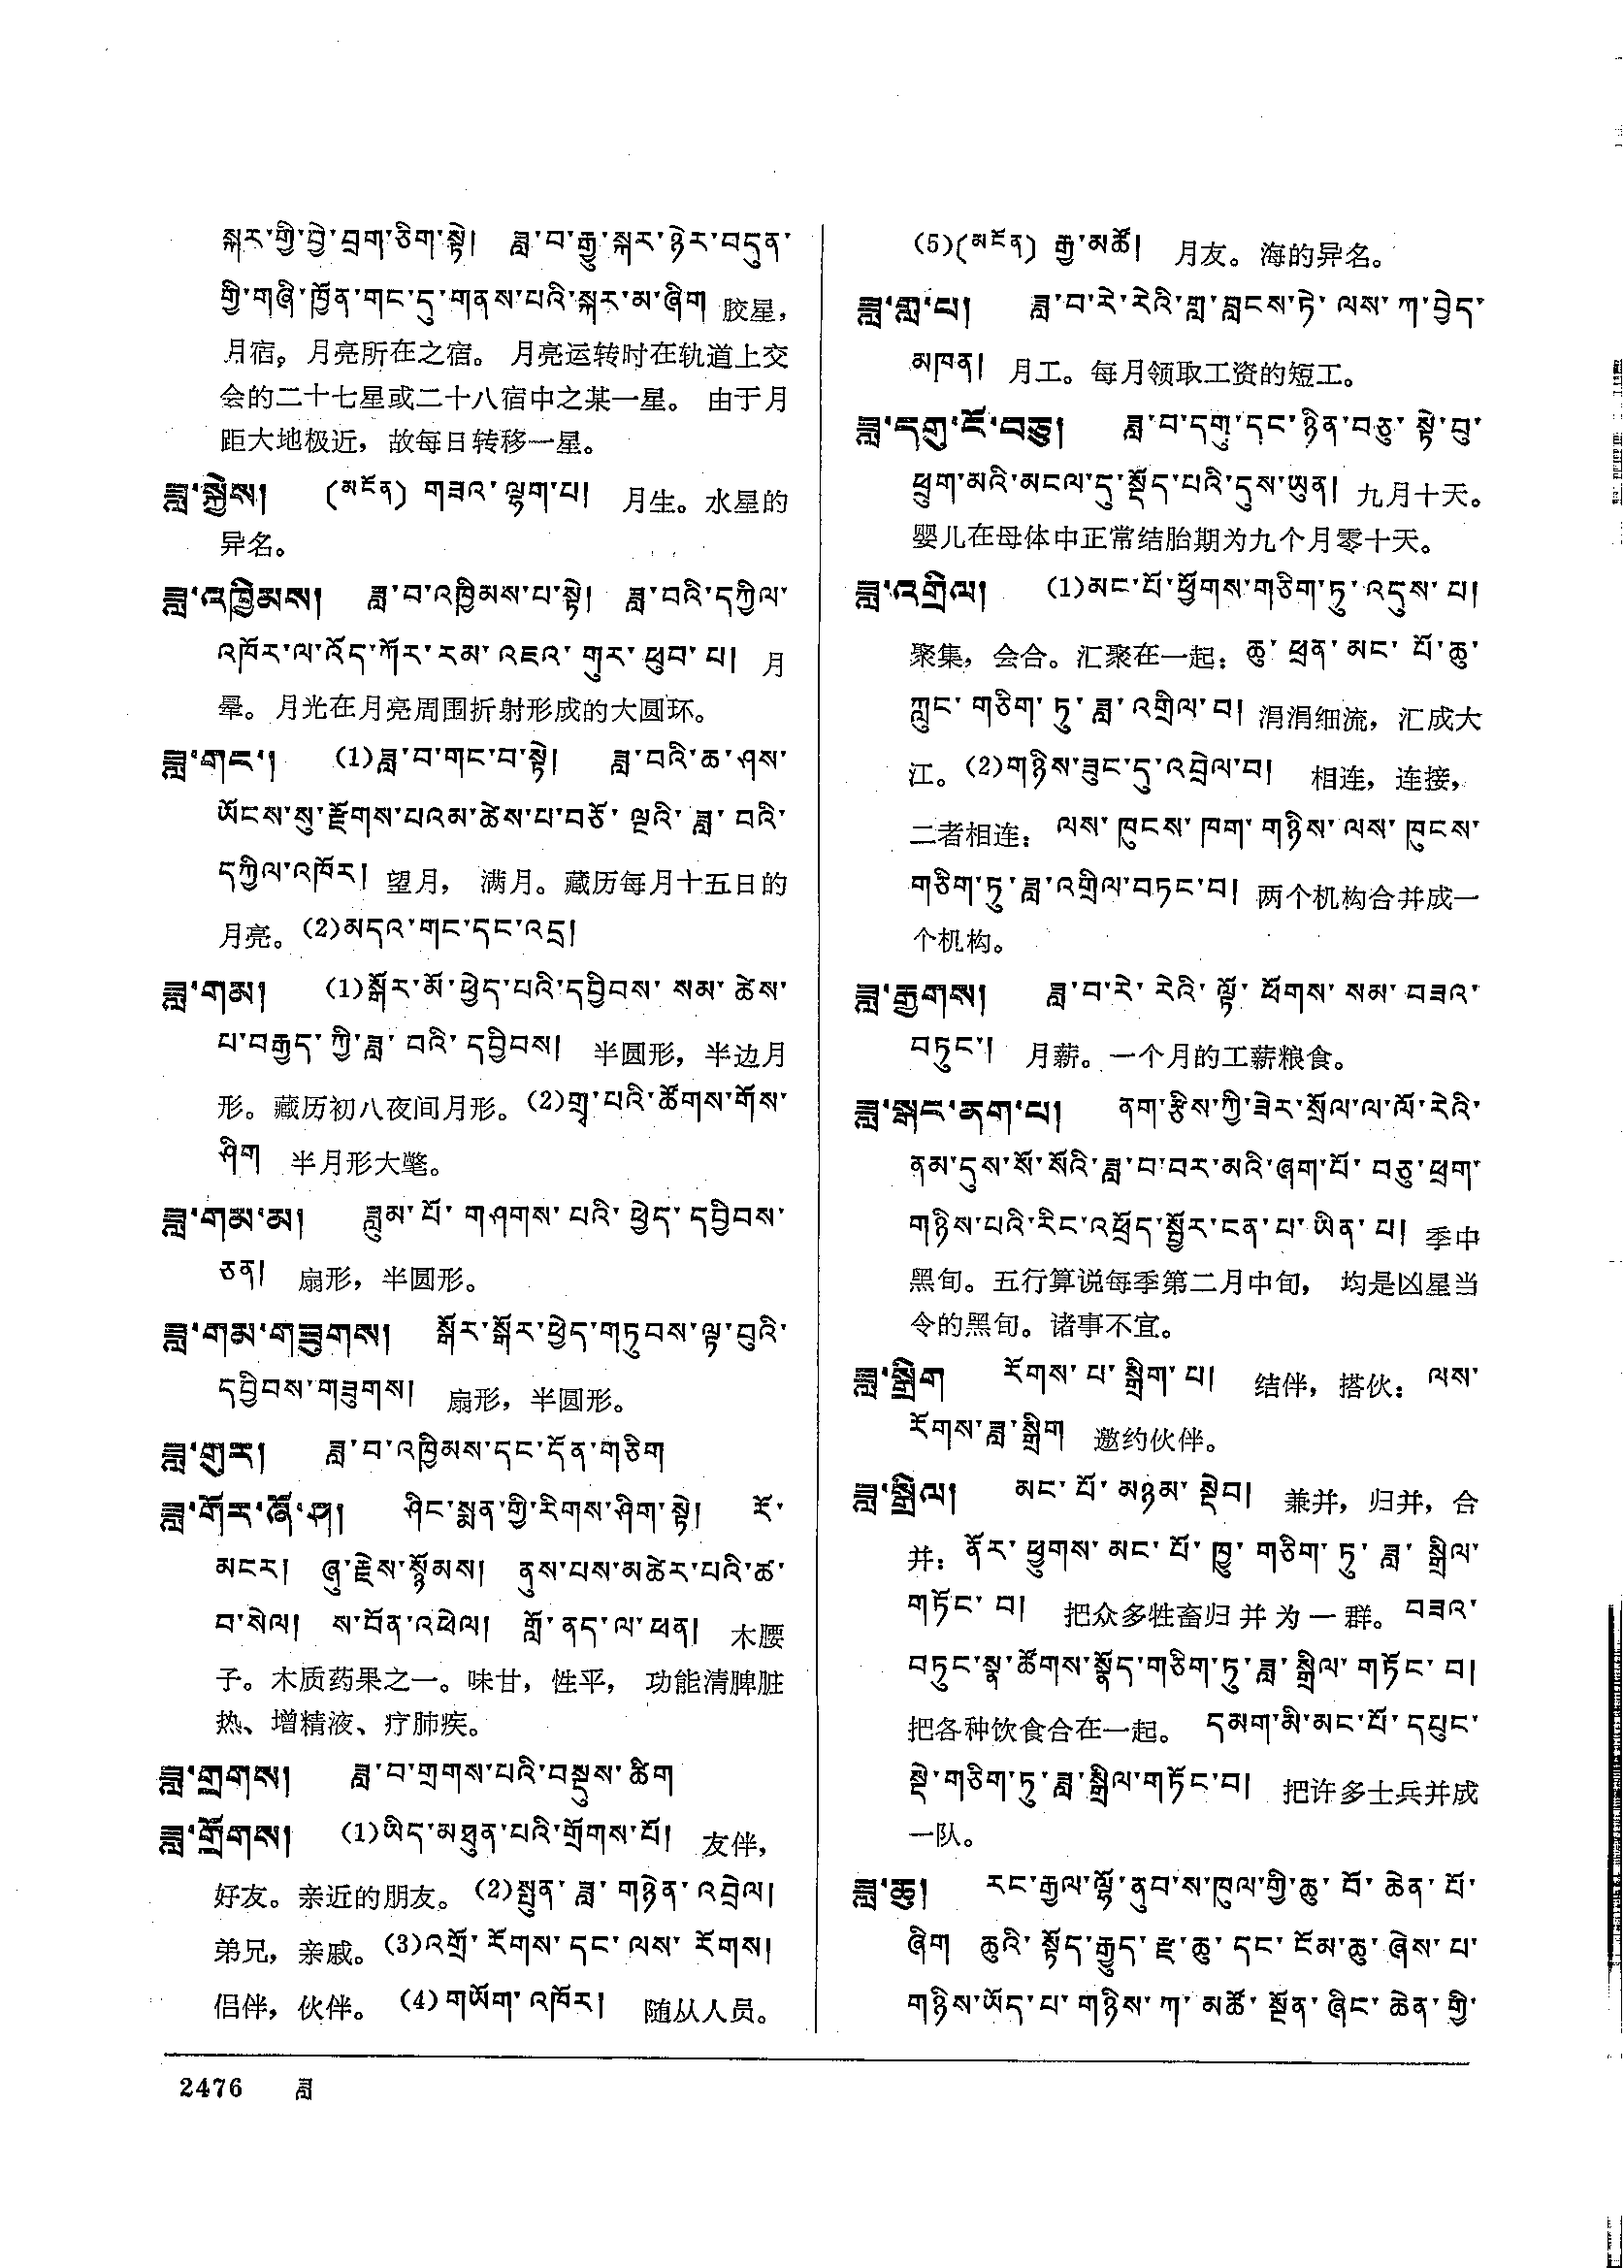 སྐར་གྱི་བྱེ་བྲག་ཅིག་སྟེ། ཟླ་བ་རྒྱུ་སྐར་ཉེར་བདུན་
གྱི་གཞི་ཁྱོན་གང་དུ་གནས་པའི་སྐར་མ་ཞིག 胶星，
月宿。月亮所在之宿。 月亮运转时在轨道上交
会的二十七星或二十八宿中之某一星。 由于月
距大地极近，故每日转移一星。
ཟླ་སྐྱེས། (མངོན) གཟའ་ལྷག་པ། 月生。水星的
异名。
ཟླ་འཁྱིམས། ཟླ་བ་འཁྱིམས་པ་སྟེ། ཟླ་བའི་དཀྱིལ་
འཁོར་ལ་འོད་ཀོར་རམ་འཇའ་གུར་ཕུབ་པ། 月
晕。月光在月亮周围折射形成的大圆环。
ཟླ་གང་། (1)ཟླ་བ་གང་བ་སྟེ། ཟླ་བའི་ཆ་ཤས་
ཡོངས་སུ་རྫོགས་པའམ་ཚེས་པ་བཅོ་ལྔའི་ཟླ་བའི་
དཀྱིལ་འཁོར། 望月， 满月。藏历每月十五日的
月亮。(2)མདའ་གང་དང་འདྲ།
ཟླ་གམ། (1)སྒོར་མོ་ཕྱེད་པའི་དབྱིབས་སམ་ཚེས་
པ་བརྒྱད་ཀྱི་ཟླ་བའི་དབྱིབས། 半圆形，半边月
形。藏历初八夜间月形。(2)གྲྭ་པའི་ཚོགས་གོས་
ཤིག 半月形大氅。
ཟླ་གམ་མ། ཟླུམ་པོ་གཤགས་པའི་ཕྱེད་དབྱིབས་
ཅན། 扇形，半圆形。
ཟླ་གམ་གཟུགས། སྒོར་སྒོར་ཕྱེད་གཏུབས་ལྟ་བུའི་
དབྱིབས་གཟུགས། 扇形，半圆形。
ཟླ་གུར། ཟླ་བ་འཁྱིམས་དང་དོན་གཅིག
ཟླ་གོར་ཞོ་ཤ། ཤིང་སྨན་གྱི་རིགས་ཤིག་སྟེ། རོ་
མངར། ཞུ་རྗེས་སྙོམས། ནུས་པས་མཚེར་པའི་ཚ་
བ་སེལ། ས་བོན་འཕེལ། གློ་ནད་ལ་ཕན། 木腰
子。木质药果之一。味甘，性平， 功能清脾脏
热、增精液、疗肺疾。
ཟླ་གྲགས། ཟླ་བ་གྲགས་པའི་བསྡུས་ཚིག
ཟླ་གྲོགས། (1)ཡིད་མཐུན་པའི་གྲོགས་པོ། 友伴，
好友。亲近的朋友。(2)སྤུན་ཟླ་གཉེན་འབྲེལ།
弟兄，亲戚。(3)འགྲོ་རོགས་དང་ལས་རོགས།
侣伴，伙伴。(4)གཡོག་འཁོར། 随从人员。
(5)(མངོན) རྒྱ་མཚོ། 月友。海的异名。
ཟླ་གླ་པ། ཟླ་བ་རེ་རེའི་གླ་བླངས་ཏེ་ལས་ཀ་བྱེད་
མཁན། 月工。每月领取工资的短工。
ཟླ་དགུ་ངོ་བཅུ། ཟླ་བ་དགུ་དང་ཉིན་བཅུ་སྟེ་བུ་
ཕྲུག་མའི་མངལ་དུ་སྡོད་པའི་དུས་ཡུན། 九月十天。
婴儿在母体中正常结胎期为九个月零十天。
ཟླ་འགྲིལ། (1)མང་པོ་ཕྱོགས་གཅིག་ཏུ་འདུས་པ།
聚集，会合。汇聚在一起：ཆུ་ཕྲན་མང་པོ་ཆུ་
ཀླུང་གཅིག་ཏུ་ཟླ་འགྲིལ་བ། 涓涓细流，汇成大
江。(2)གཉིས་ཟུང་དུ་འབྲེལ་བ། 相连，连接，
二者相连：ལས་ཁུངས་ཁག་གཉིས་ལས་ཁུངས་
གཅིག་ཏུ་ཟླ་འགྲིལ་བཏང་བ། 两个机构合并成一
个机构。
ཟླ་རྒྱགས། ཟླ་བ་རེ་རེའི་ལྟོ་ཕོགས་སམ་བཟའ་
བཏུང་། 月薪。一个月的工薪粮食。
ཟླ་སྒང་ནག་པ། ནག་རྩིས་ཀྱི་ཟེར་སྲོལ་ལ་ལོ་རེའི་
ནམ་དུས་སོ་སོའི་ཟླ་བ་བར་མའི་ཞག་པོ་བཅུ་ཕྲག་
གཉིས་པའི་རིང་འཕྲོད་སྦྱོར་ངན་པ་ཡིན་པ། 季中
黑旬。五行算说每季第二月中旬， 均是凶星当
令的黑旬。诸事不宜。
ཟླ་སྒྲིག རོགས་པ་སྒྲིག་པ། 结伴，搭伙：ལས་
རོགས་ཟླ་སྒྲིག 邀约伙伴。
ཟླ་སྒྲིལ། མང་པོ་མཉམ་སྡེབ། 兼并，归并，合
并：ནོར་ཕྱུགས་མང་པོ་ཁྱུ་གཅིག་ཏུ་ཟླ་སྒྲིལ་
གཏོང་བ། 把众多牲畜归并为一群。བཟའ་
བཏུང་སྣ་ཚོགས་སྣོད་གཅིག་ཏུ་ཟླ་སྒྲིལ་གཏོང་བ།
把各种饮食合在一起。 དམག་མི་མང་པོ་དཔུང་
སྡེ་གཅིག་ཏུ་ཟླ་སྒྲིལ་གཏོང་བ། 把许多士兵并成
一队。
ཟླ་ཆུ། རང་རྒྱལ་ལྷོ་ནུབ་ས་ཁུལ་གྱི་ཆུ་བོ་ཆེན་པོ་
ཞིག ཆུའི་སྟོད་རྒྱུད་རྫ་ཆུ་དང་ངོམ་ཆུ་ཞེས་པ་
གཉིས་ཡོད་པ་གཉིས་ཀ་མཚོ་སྔོན་ཞིང་ཆེན་གྱི་
2476 ཟླ